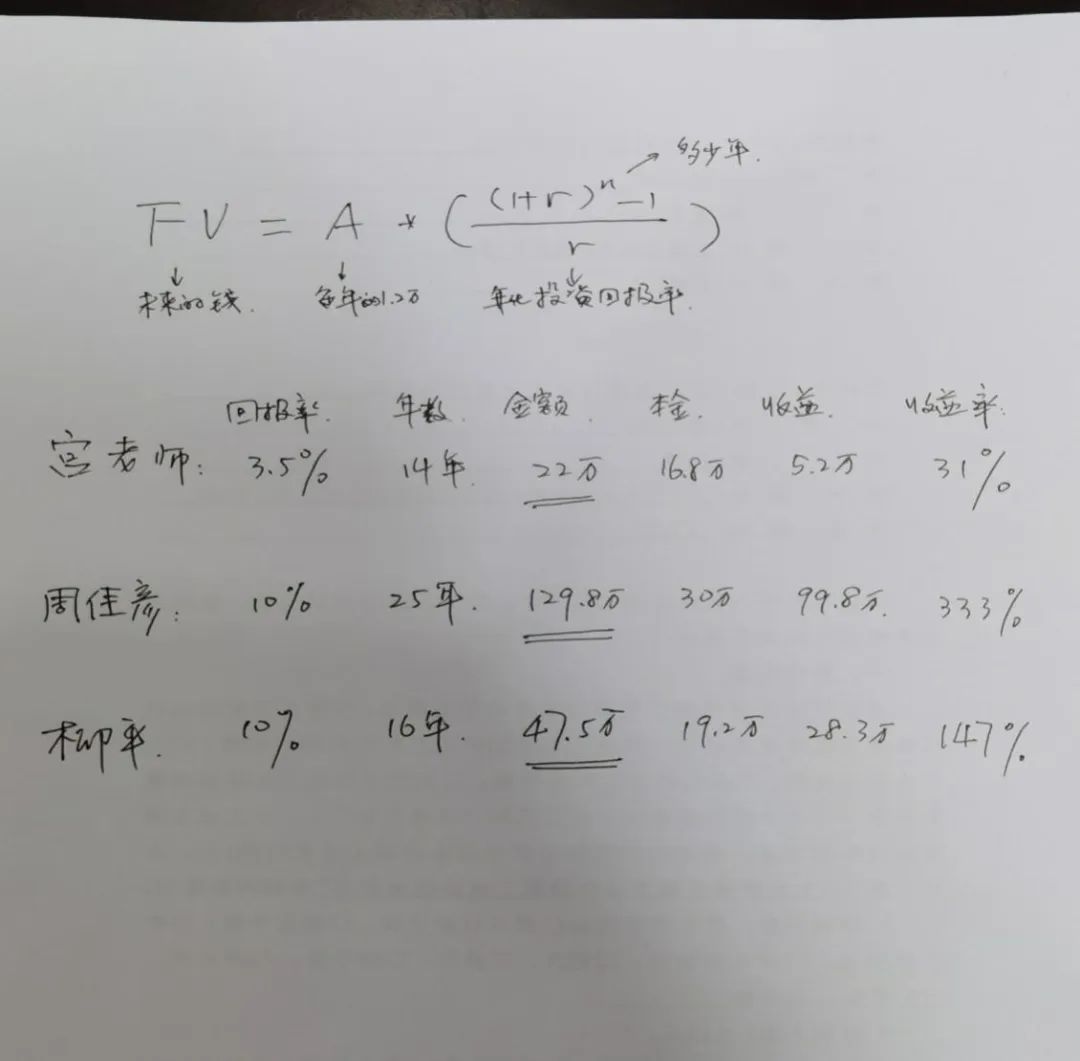 多少年.
FV = A * ( ((1+r)^n - 1) / r )
未来的钱. 每年的1.2万 年化投资回报率.
回报率. 年数. 金额. 本金. 收益. 收益率.
宫老师: 3.5% 14年. 22万 16.8万 5.2万 31%
周佳彦: 10% 25年. 129.8万 30万 99.8万. 333%
柳平. 10% 16年. 47.5万 19.2万 28.3万 147%.